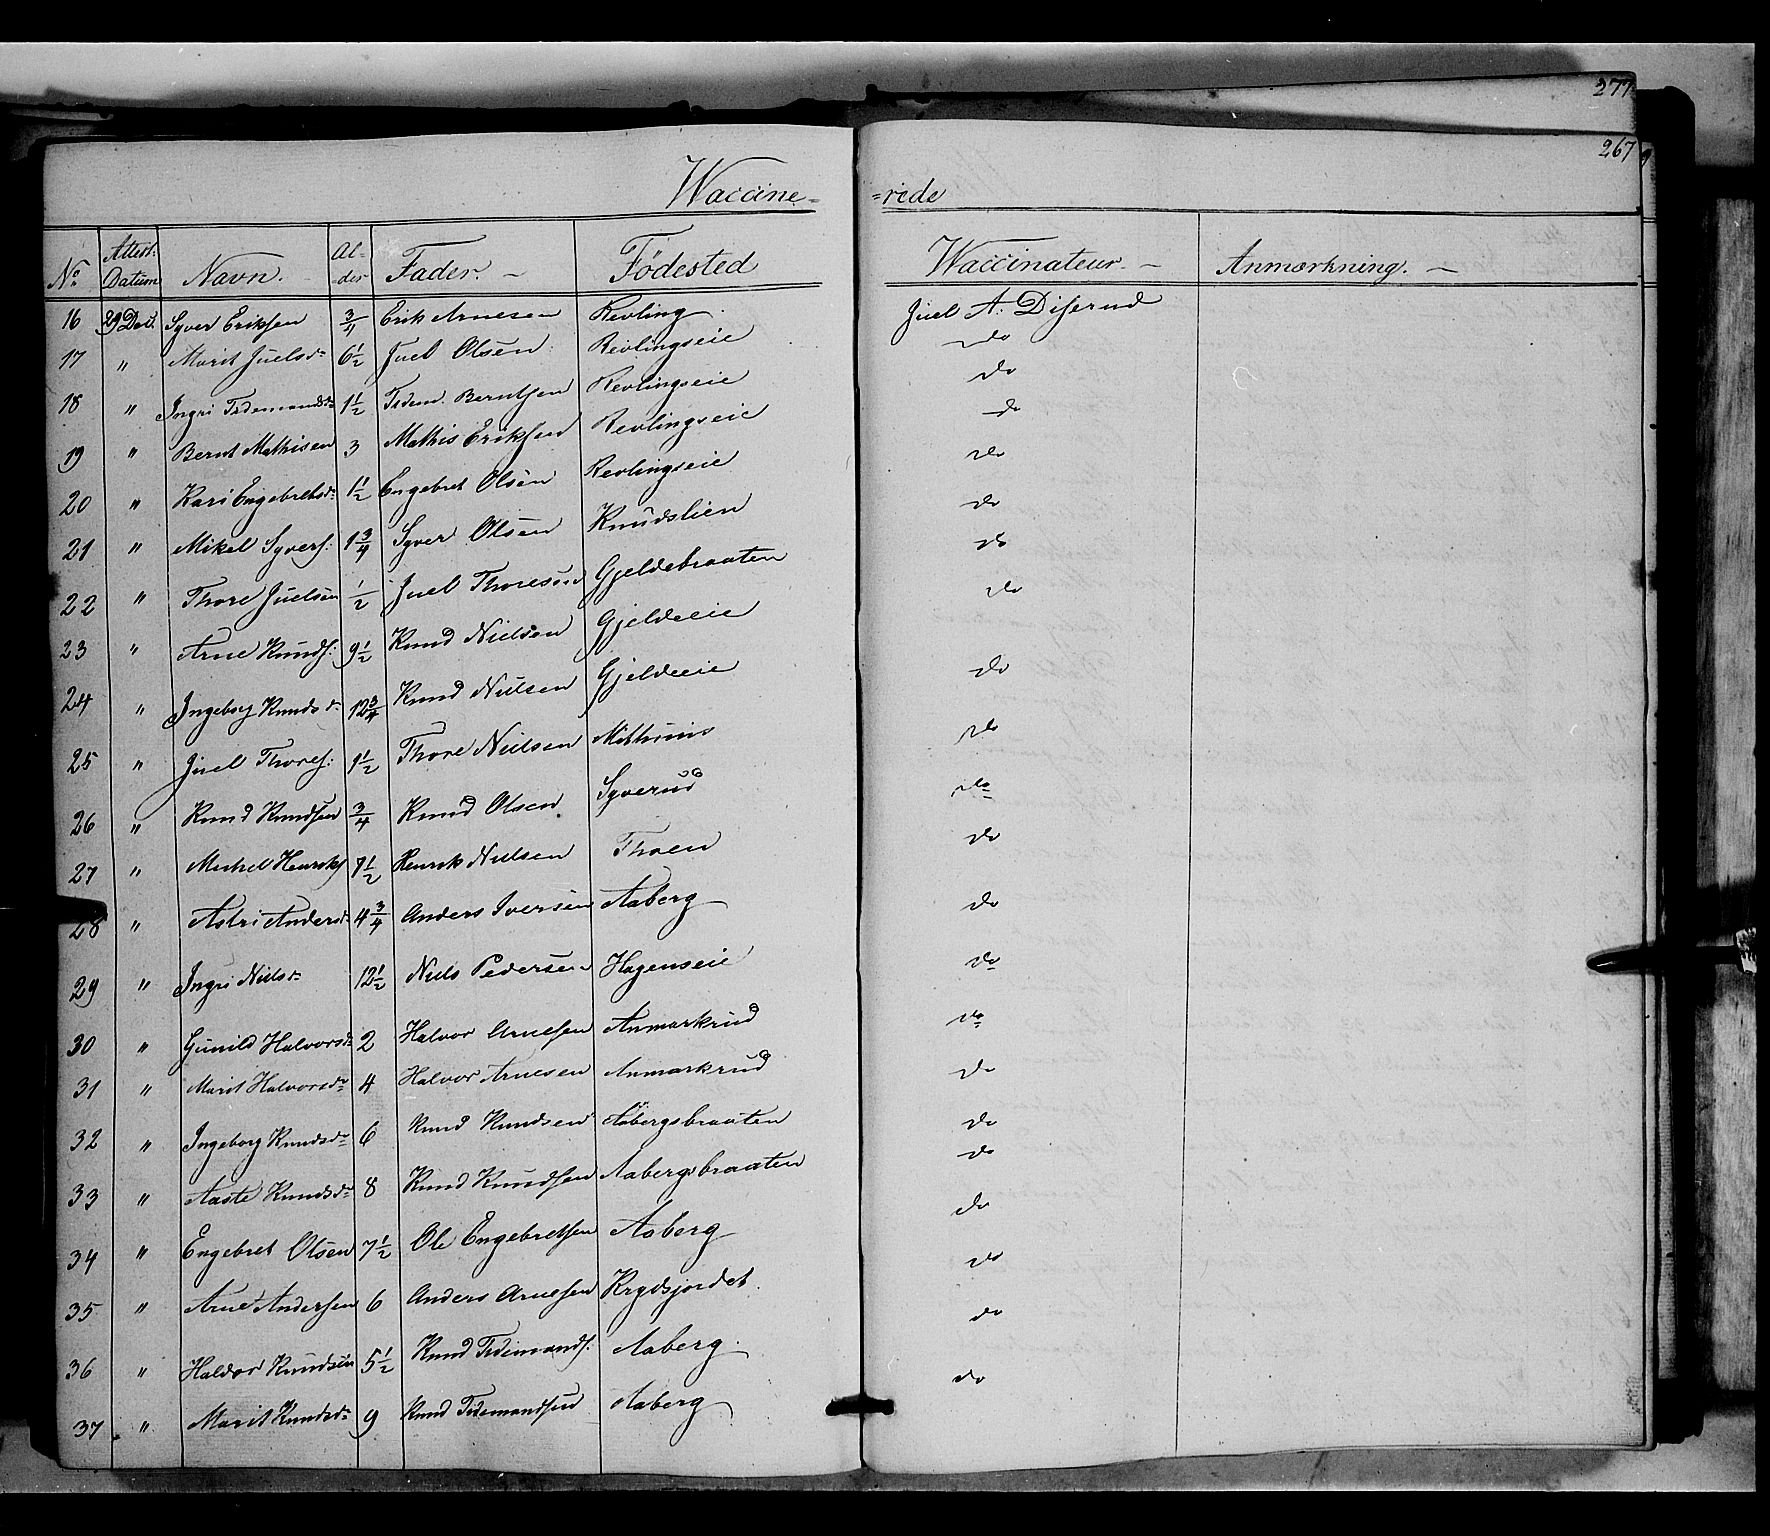 277
267
Waccine= =rede
No Attest: Datum Navn. Al-der Fader. Fødested Waccinateur. Anmærkning.
16 29 Dec. Syver Eriksen 3/4 Erik Arnesen Revling Juel A. Diserud
17 " Marit Juelsd 6 1/2 Juel Olsen Revlingseie do
18 " Ingri Tidemandsd 1 1/2 Tidem. Berntsen Revlingseie do
19 " Bernt Mathisen 3 Mathis Eriksen Revlingseie do
20 " Kari Engebretsd 1 1/2 Engebret Olsen Revlingseie do
21 " Mikel Syvers: 1 3/4 Syver Olsen Knudslien do
22 " Thore Juelsen 1/2 Juel Thoresen Gjeldebraaten do
23 " Arne Knuds: 9 1/2 Knud Nielsen Gjeldeeie do
24 " Ingeborg Knudsd 12 3/4 Knud Nielsen Gjeldeeie do
25 " Juel Thores: 1 1/2 Thore Nielsen do
26 " Knud Knudsen 3/4 Knud Olsen Syverud do
27 " Michel Henriks 1 1/2 Henrik Nielsen Thoen do
28 " Astri Andersd 4 3/4 Anders Iversen Aaberg do
29 " Ingri Nielsd 12 1/2 Niels Pedersen Hagenseie do
30 " Gunild Halvorsd 2 Halvor Arnesen Anmarkrud do
31 " Marit Halvorsd 4 Halvor Arnesen Anmarkrud do
32 " Ingeborg Knudsd 6 Knud Knudsen Aabergsbraaten do
33 " Aaste Knudsd 8 Knud Knudsen Aabergsbraaten do
34 " Engebret Olsen 7 1/2 Ole Engebretsen Aaberg do
35 " Arne Andersen 6 Anders Arnesen Krydsjordet do
36 " Haldor Knudsen 5 1/2 Knud Tidemands: Aaberg do
37 " Marit Knudsd 9 Knud Tidemandsen Aaberg do